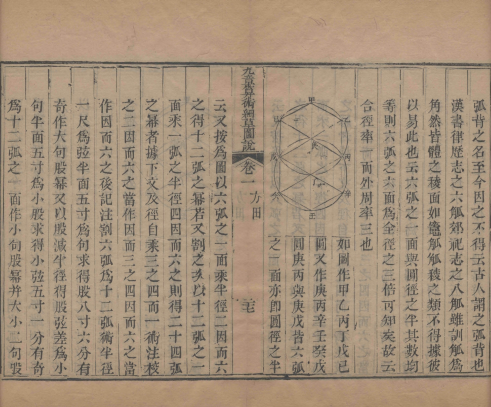 弧背之名至今因之不得云古人謂之弧背也
漢書律歷志之六觚郊祀志之八觚雖訓觚爲
角然皆體之稜面如甗觚觚稜之類不得據彼
以易此也云六弧之一面與圓徑之半其數均
等則六弧之六面爲全徑之三倍可知矣故云
合徑率一而外周率三也
如圖作甲乙丙丁戊己
圓又作庚丙辛壬癸戊
圓庚丙與庚戊皆六弧
之一面亦即圓徑之半
甲
乙
丙
庚
壬
九章算術細草圖說
卷一
方田
云又按爲圖以六弧之一面乘半徑二因而六
之得十二弧之冪若又割之次以十二弧之一
面乘一弧之半徑四因而六之則得二十四弧
之冪者據下文及徑自乘三之四而一術注校
之二因而六之當作因而三之四因而六之當
作因而六之後記注割六弧爲十二弧術半徑
一尺爲弦半面五寸爲句求得股八寸六分有
奇作大句股冪又以股減半徑得股弦差爲小
句半面五寸爲小股求得小弦五寸一分有奇
爲十二弧之一面作小句股冪并大小二句股